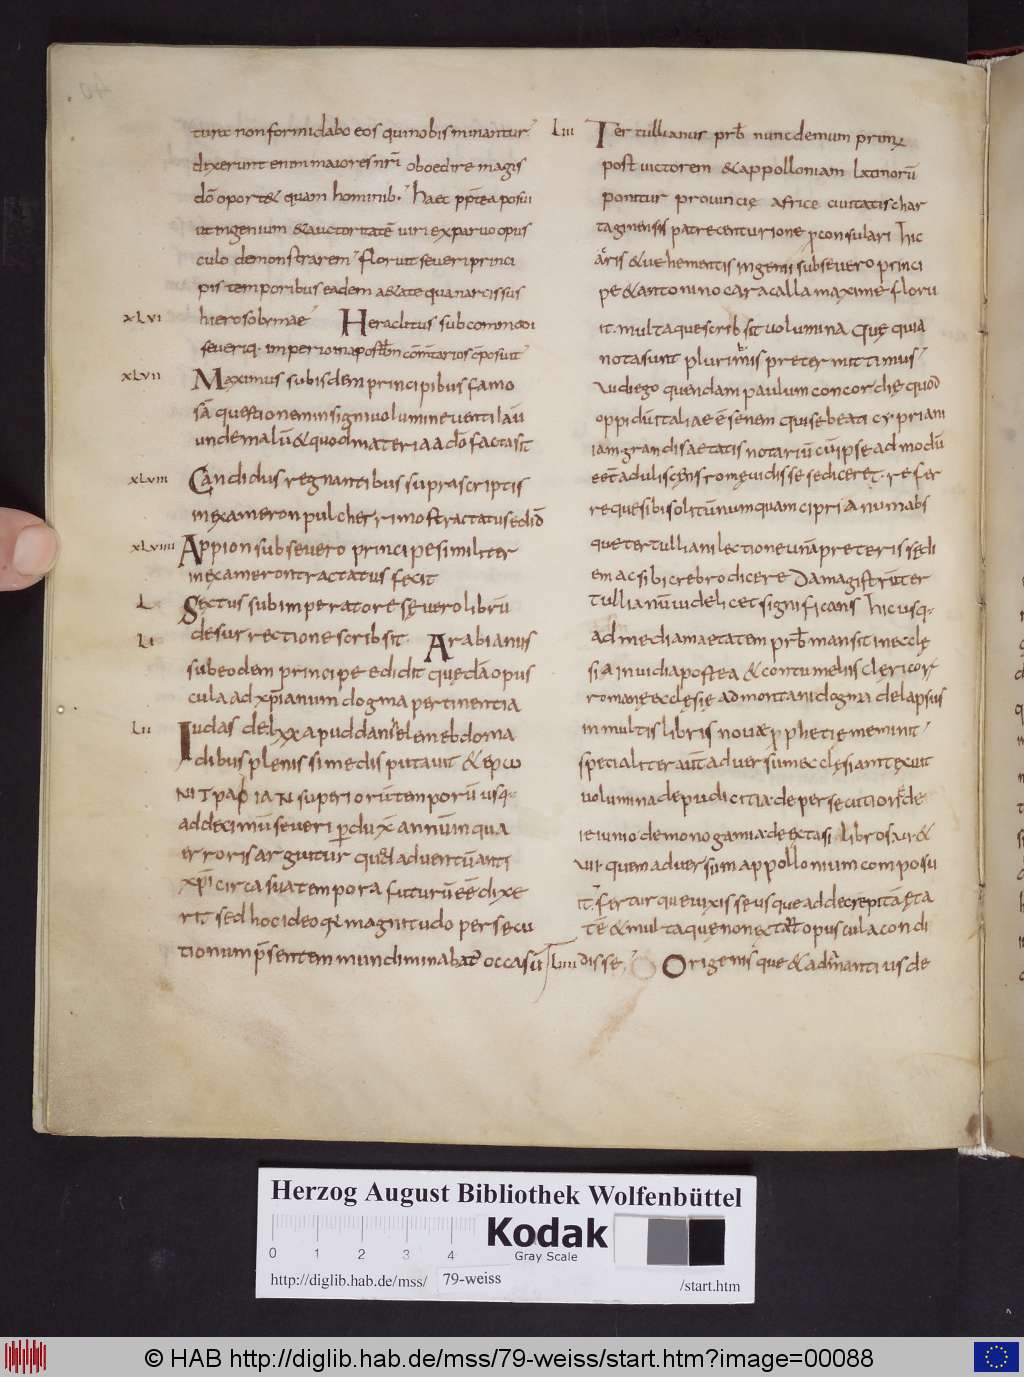 tunc non formidabo eos qui nobis minantur
dixerunt enim maiores nr̄i oboedire magis
dō oport& quam hominib· Haec ppt̄ea posui
ut ingenium & auctoritatē viri ex parvo opus
culo demonstrarem Floruit severi princi
pis temporibus eadem aetate qua narcissus
xLvi hierosolymae Heraclitus sub commodi
severiq· imperio in apostolū com̄tarios cōposuit
xLvii Maximus sub isdem principibus famo
sā questionem insigni volumine ventilavit
unde malū & quod materia a dō facta sit
xLviii Candidus regnantibus suprascriptis
in exameron pulcherrimos tractatus edid
xLviiii Appion sub severo principe similiter
in exameron tractatus fecit
L Sextus sub imperatore sęvero librū
Li de surrectione scribsit. Arabianus
sub eodem principe edidit quędā opus
cula ad xp̄ianum dogma pertinentia
Lii Iudas de lxx apud danielem ebdoma
dibus plenissime disputavit & χρω
NiΓραφ iaN superiorū temporū usq·
ad decimū severi perduxit annum in qua
erroris arguitur quod adventū anti
xp̄i circa sua tempora futurū eē dixe
rit sed hoc ideo quia magnitudo persecu
tionum p̄sentem mundi minabat occasū
Liii Tertullianus prb̄ nunc demum primus
post victorem & appolloniam Latinorū
ponitur provincię africe civitatis char
taginensis patre centurione proconsulari hic
acris & vehementis ingenii sub severo princi
pe & antonino caracalla maxime floru
it. multaque scribsit volumina Quę quia
nota sunt plurimis pretermittimus
Vidi ego quendam paulum concordię quod
oppidū italiae ē senem qui se beati cypriani
iam grandis aetatis notariū cū ipse admodū
eēt aduliscens romę vidisse se diceret. refer
reque sibi solitū numquam ciprianum abs
que tertulliani lectione unā preterisse di
em ac sibi crebro dicere Da magistrū ter
tullianū videlicet significans hic usq·
ad mediam aetatem prb̄ mansit in ecclę
sia invidia postea & contumeliis clęricorum
romanę ecclęsię ad montani dogma delapsus
in multis libris novae prophetię meminit
specialiter aūt adversum ecclęsiam texuit
volumina de pudicitia· de persecutione· de
ieiunio· de monogamia· de extasi libros· vi· &
vii· quem adversum appollonium composu
it· fertur quę vixisse usque ad decrepitā ęta
tē & multa quę non extant opuscula condi
Liiii disse Origenis que & adamantius de
Herzog August Bibliothek Wolfenbüttel
0 1 2 3 4
Kodak
Gray Scale
http://diglib.hab.de/mss/ 79-weiss /start.htm
© HAB http://diglib.hab.de/mss/79-weiss/start.htm?image=00088